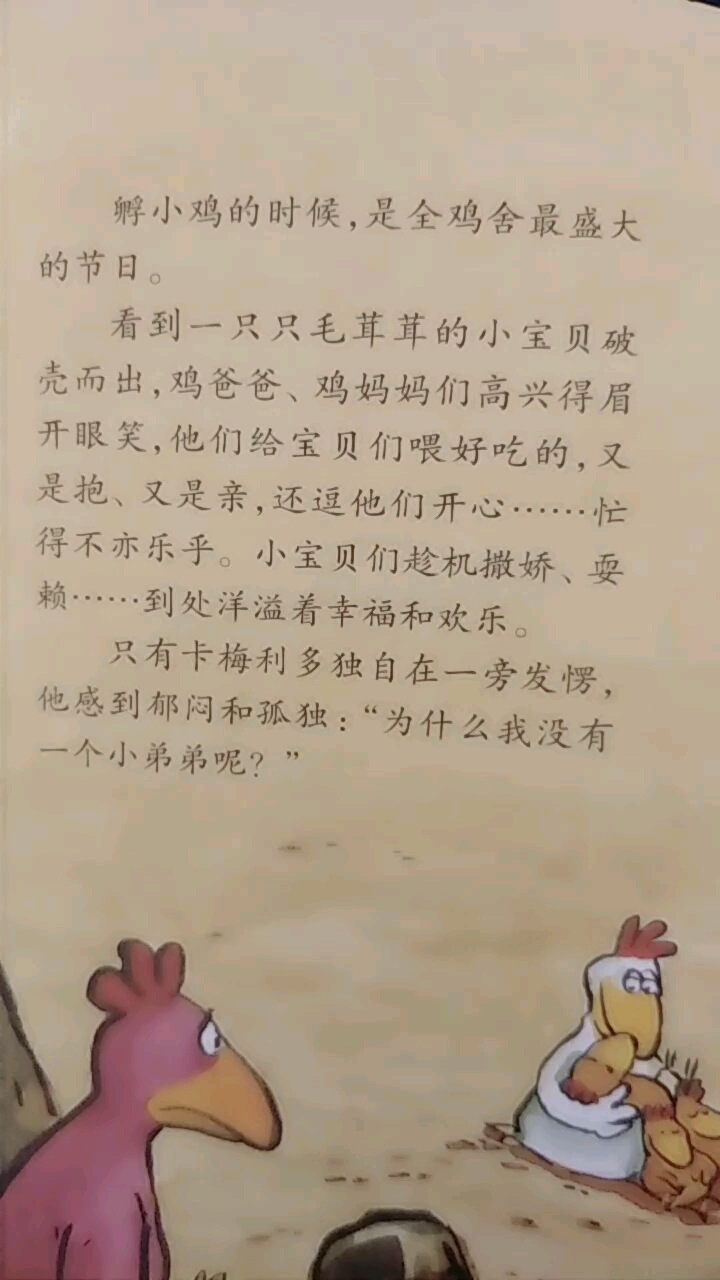 孵小鸡的时候,是全鸡舍最盛大
的节日。
看到一只只毛茸茸的小宝贝破
壳而出,鸡爸爸、鸡妈妈们高兴得眉
开眼笑,他们给宝贝们喂好吃的,又
是抱、又是亲,还逗他们开心……忙
得不亦乐乎。小宝贝们趁机撒娇、耍
赖……到处洋溢着幸福和欢乐。
只有卡梅利多独自在一旁发愣,
他感到郁闷和孤独:“为什么我没有
一个小弟弟呢?”